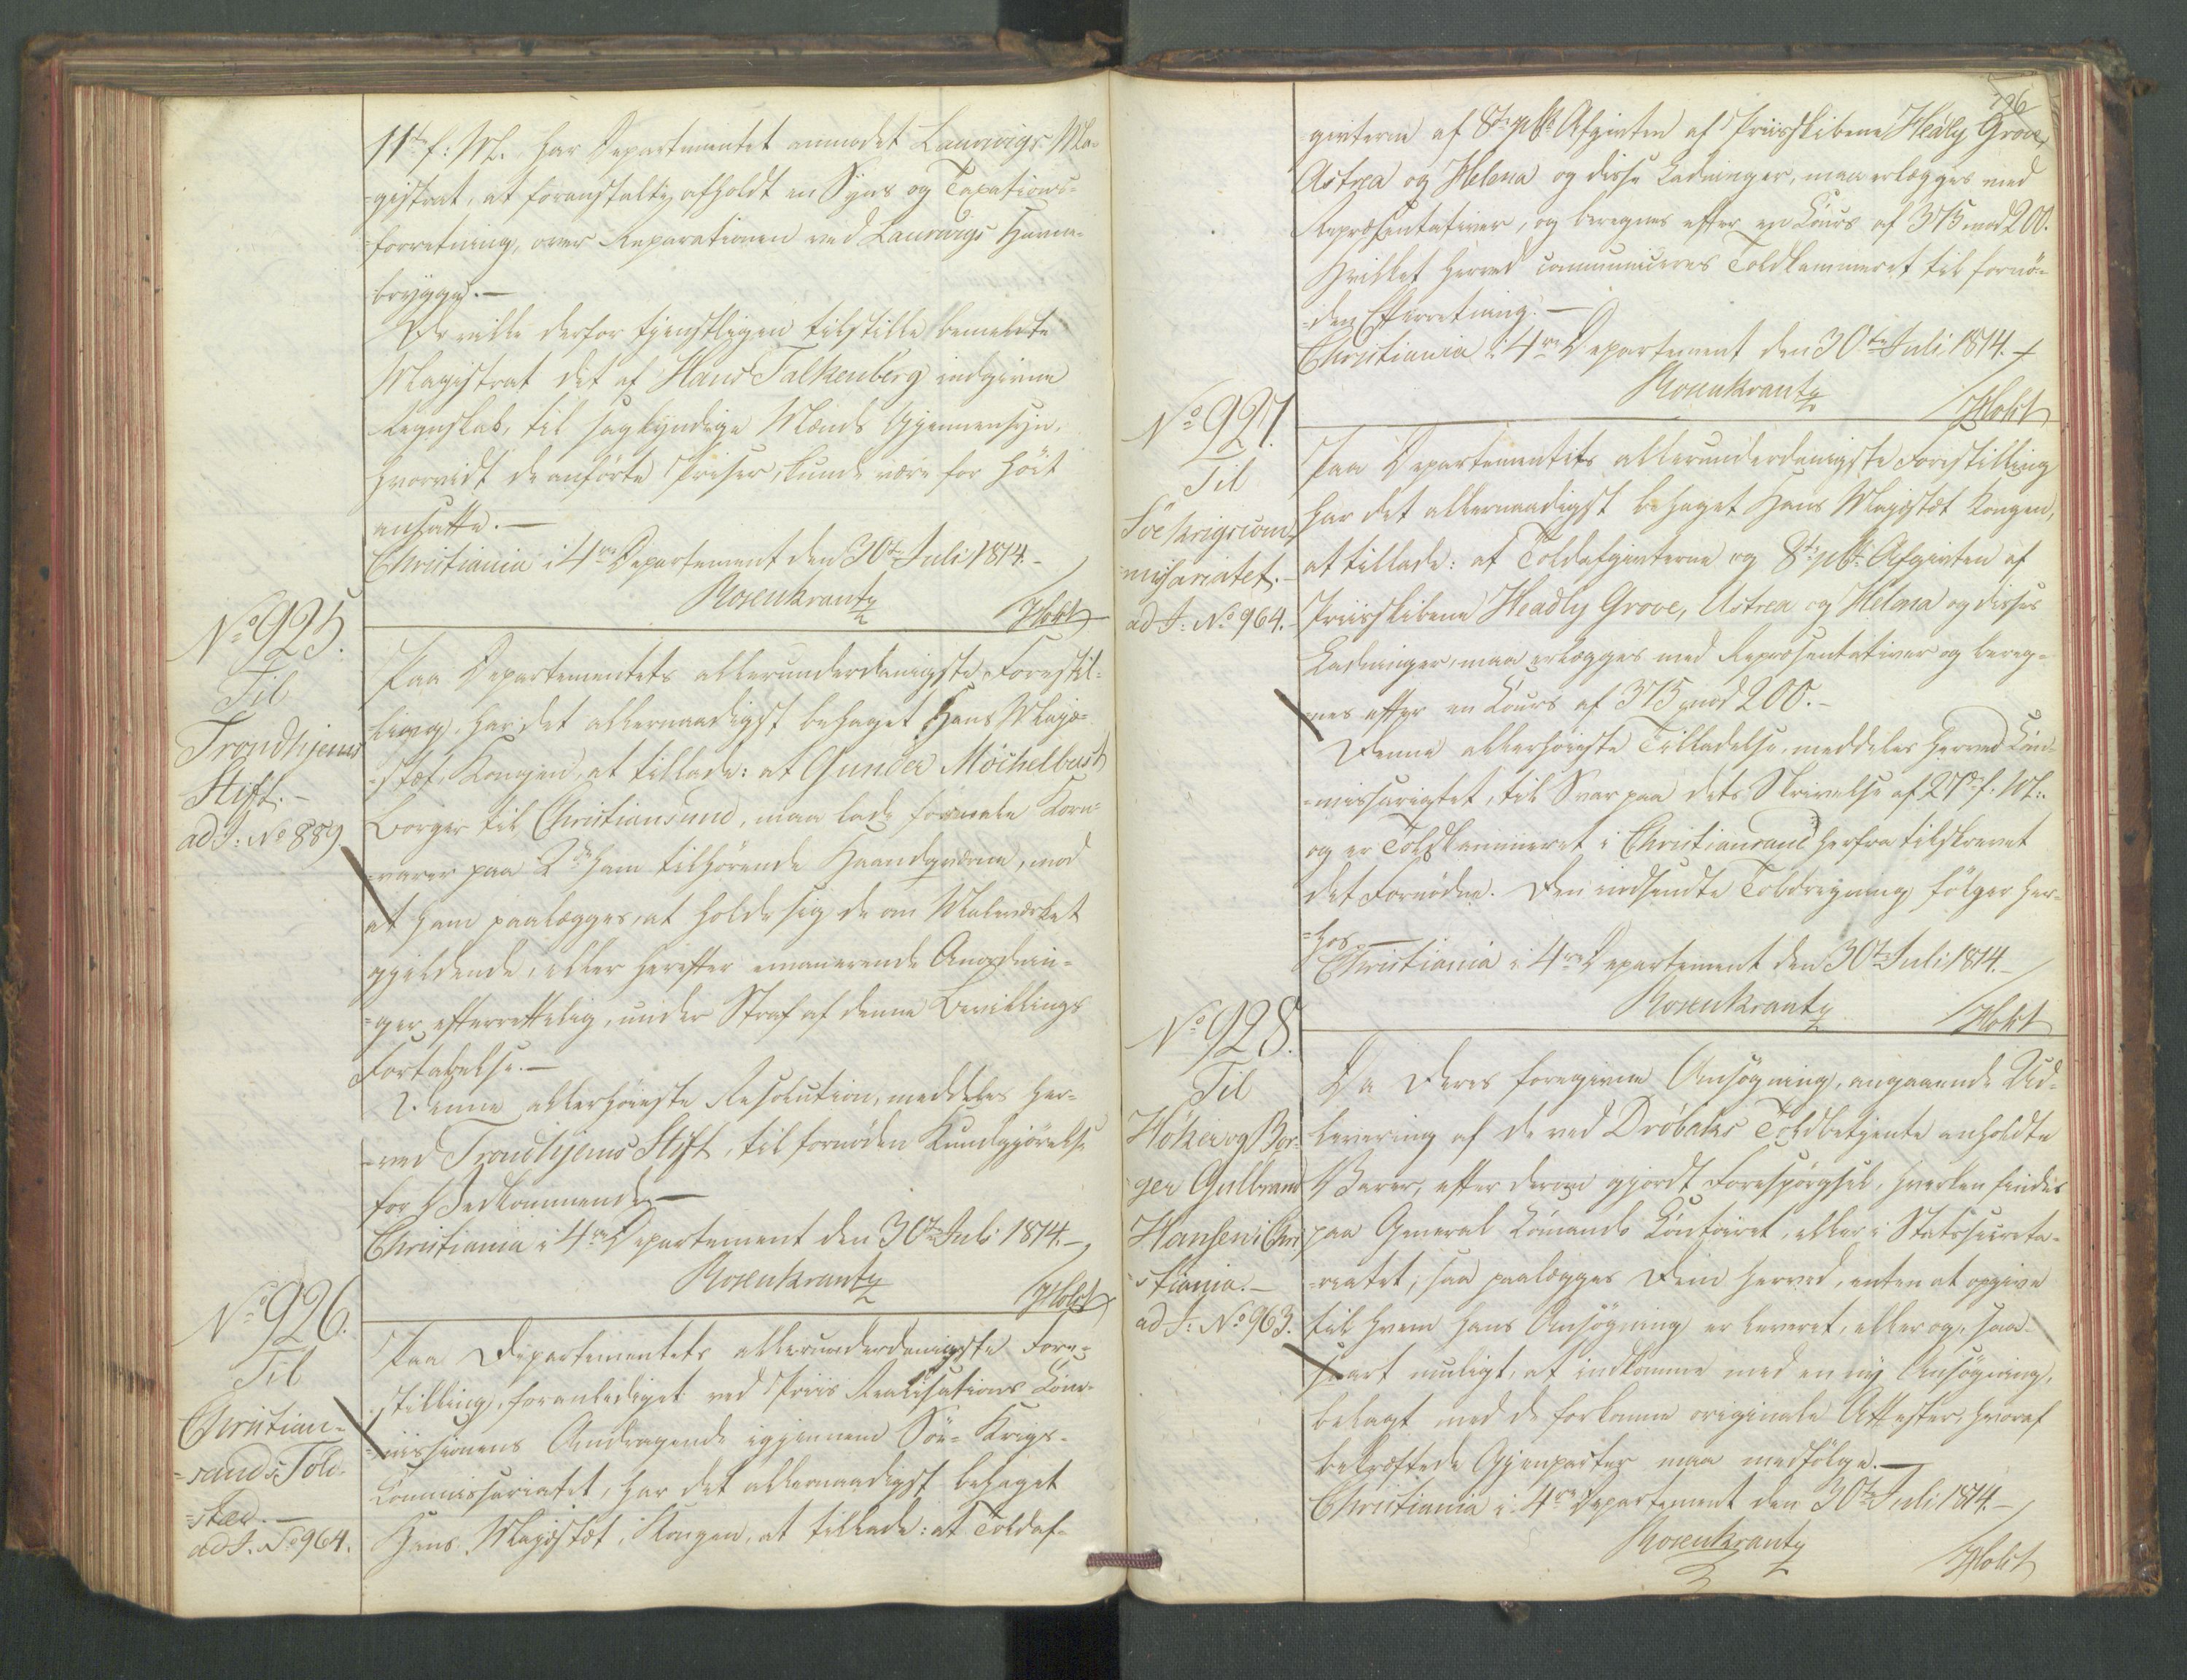 11te f: M. har Departementet anmodet Laurvigs Ma-
-gistrat, at foranstalte afholdt en Syns og Taxations-
-forretning, over Reparationen ved Laurvigs Havne-
-brygge.-
De ville derfor tjenstligen tilstille bemeldte
Magistrat det af Hans Falkenberg indgivne
Regnskab, til sagkyndige Mænds Gjennemsyn,
hvorvidt de anførte Priser, kunde være for høit
ansatte.-
Christiania i 4re Departement den 30te Juli 1814.-
Rosenkrantz
/Holst
No 925.
Til
Trondhjems
Stift.-
ad J: No 889
Paa Departementets allerunderdanigste Forestil-
-ling, har det allernaadigst behaget Hans Maje-
-stæt, Kongen, at tillade: at Gunder Möchelbust
Borger til Christiansund, maa lade formale Korn-
-varer paa 2de ham tilhørende Haandqværne, mod
at ham paalægges, at holde sig de om Maleværket
gjældende, eller herefter emanerende Anordnin-
-ger efterrettelig, under Straf af denne Bevillings
Fortabelse.-
Denne allerhøieste Resolution, meddeles her-
-ved Trondhjems Stift, til fornøden Kundgjørelse
for Vedkommende.-
Christiania i 4re Departement den 30te Juli 1814.-
Rosenkrantz
/Holst
No 926.
Til
Christian-
-sands Told-
-sted.-
ad J. No 964.
Paa Departementets allerunderdanigste Fore-
-stilling, foranlediget ved Priis Realisations Com-
-missionens Andragende igjennem Söe-Krigs-
Commissariatet, har det allernaadigst behaget
Hans Majestæt, Kongen, at tillade: at Toldaf-
196
givterne af 8te pCt Afgivten af Priisskibene Headly Grove,
Astrea og Helena og disse Ladninger, maa erlægges med
Repræsentativer, og beregnes efter en Cours af 375 mod 200.
Hvilket herved communiceres Toldkammeret til fornö-
-den Efterretning.-
Christiania i 4re Departement den 30te Juli 1814.-
Rosenkrantz
/Holst
No 927.
Til
Söe Krigscom-
-missariatet.-
ad J: No 964.-
Paa Departementets allerunderdanigste Forestilling
har det allernaadigst behaget Hans Majestæt Kongen,
at tillade: at Toldafgivterne og 8te pCt Afgivten af
Priisskibene Headly Grove, Astrea og Helena og disses
Ladninger, maa erlægges med Repræsentativer og bereg-
-nes efter en Cours af 375 mod 200.-
Denne allerhöieste Tilladelse, meddeles herved Com-
-missariatet, til Svar paa dets Skrivelse af 27de f. M.
og er Toldkammeret i Christiansand herfra tilskrevet
det Fornödne. Den indsendte Toldregning fölger her-
-hos.-
Christiania i 4re Departement den 30te Juli 1814.-
Rosenkrantz
/Holst
No 928.
Til
Höker og Bor-
ger Gulbrand
Hansen i Chri-
-stiania.-
ad J: No 963.
Da Deres foregivne Ansögning, angaaende Ud-
levering af de ved Dröbaks Toldbetjente anholdte
Varer, efter derom gjordt Forespörgsel, hverken findes
paa General Commando Contoiret, eller i Statssecreta-
-riatet, saa paalægges Dem herved, enten at opgive
til hvem hans Ansögning er leveret, eller og, saa-
snart muligt, at indkomme med en ny Ansögning,
belagt med de forkomne originale Attester, hvoraf
bekræftede Gjenparter maa medfölge.-
Christiania i 4re Departement den 30te Juli 1814.-
Rosenkrantz
/Holst